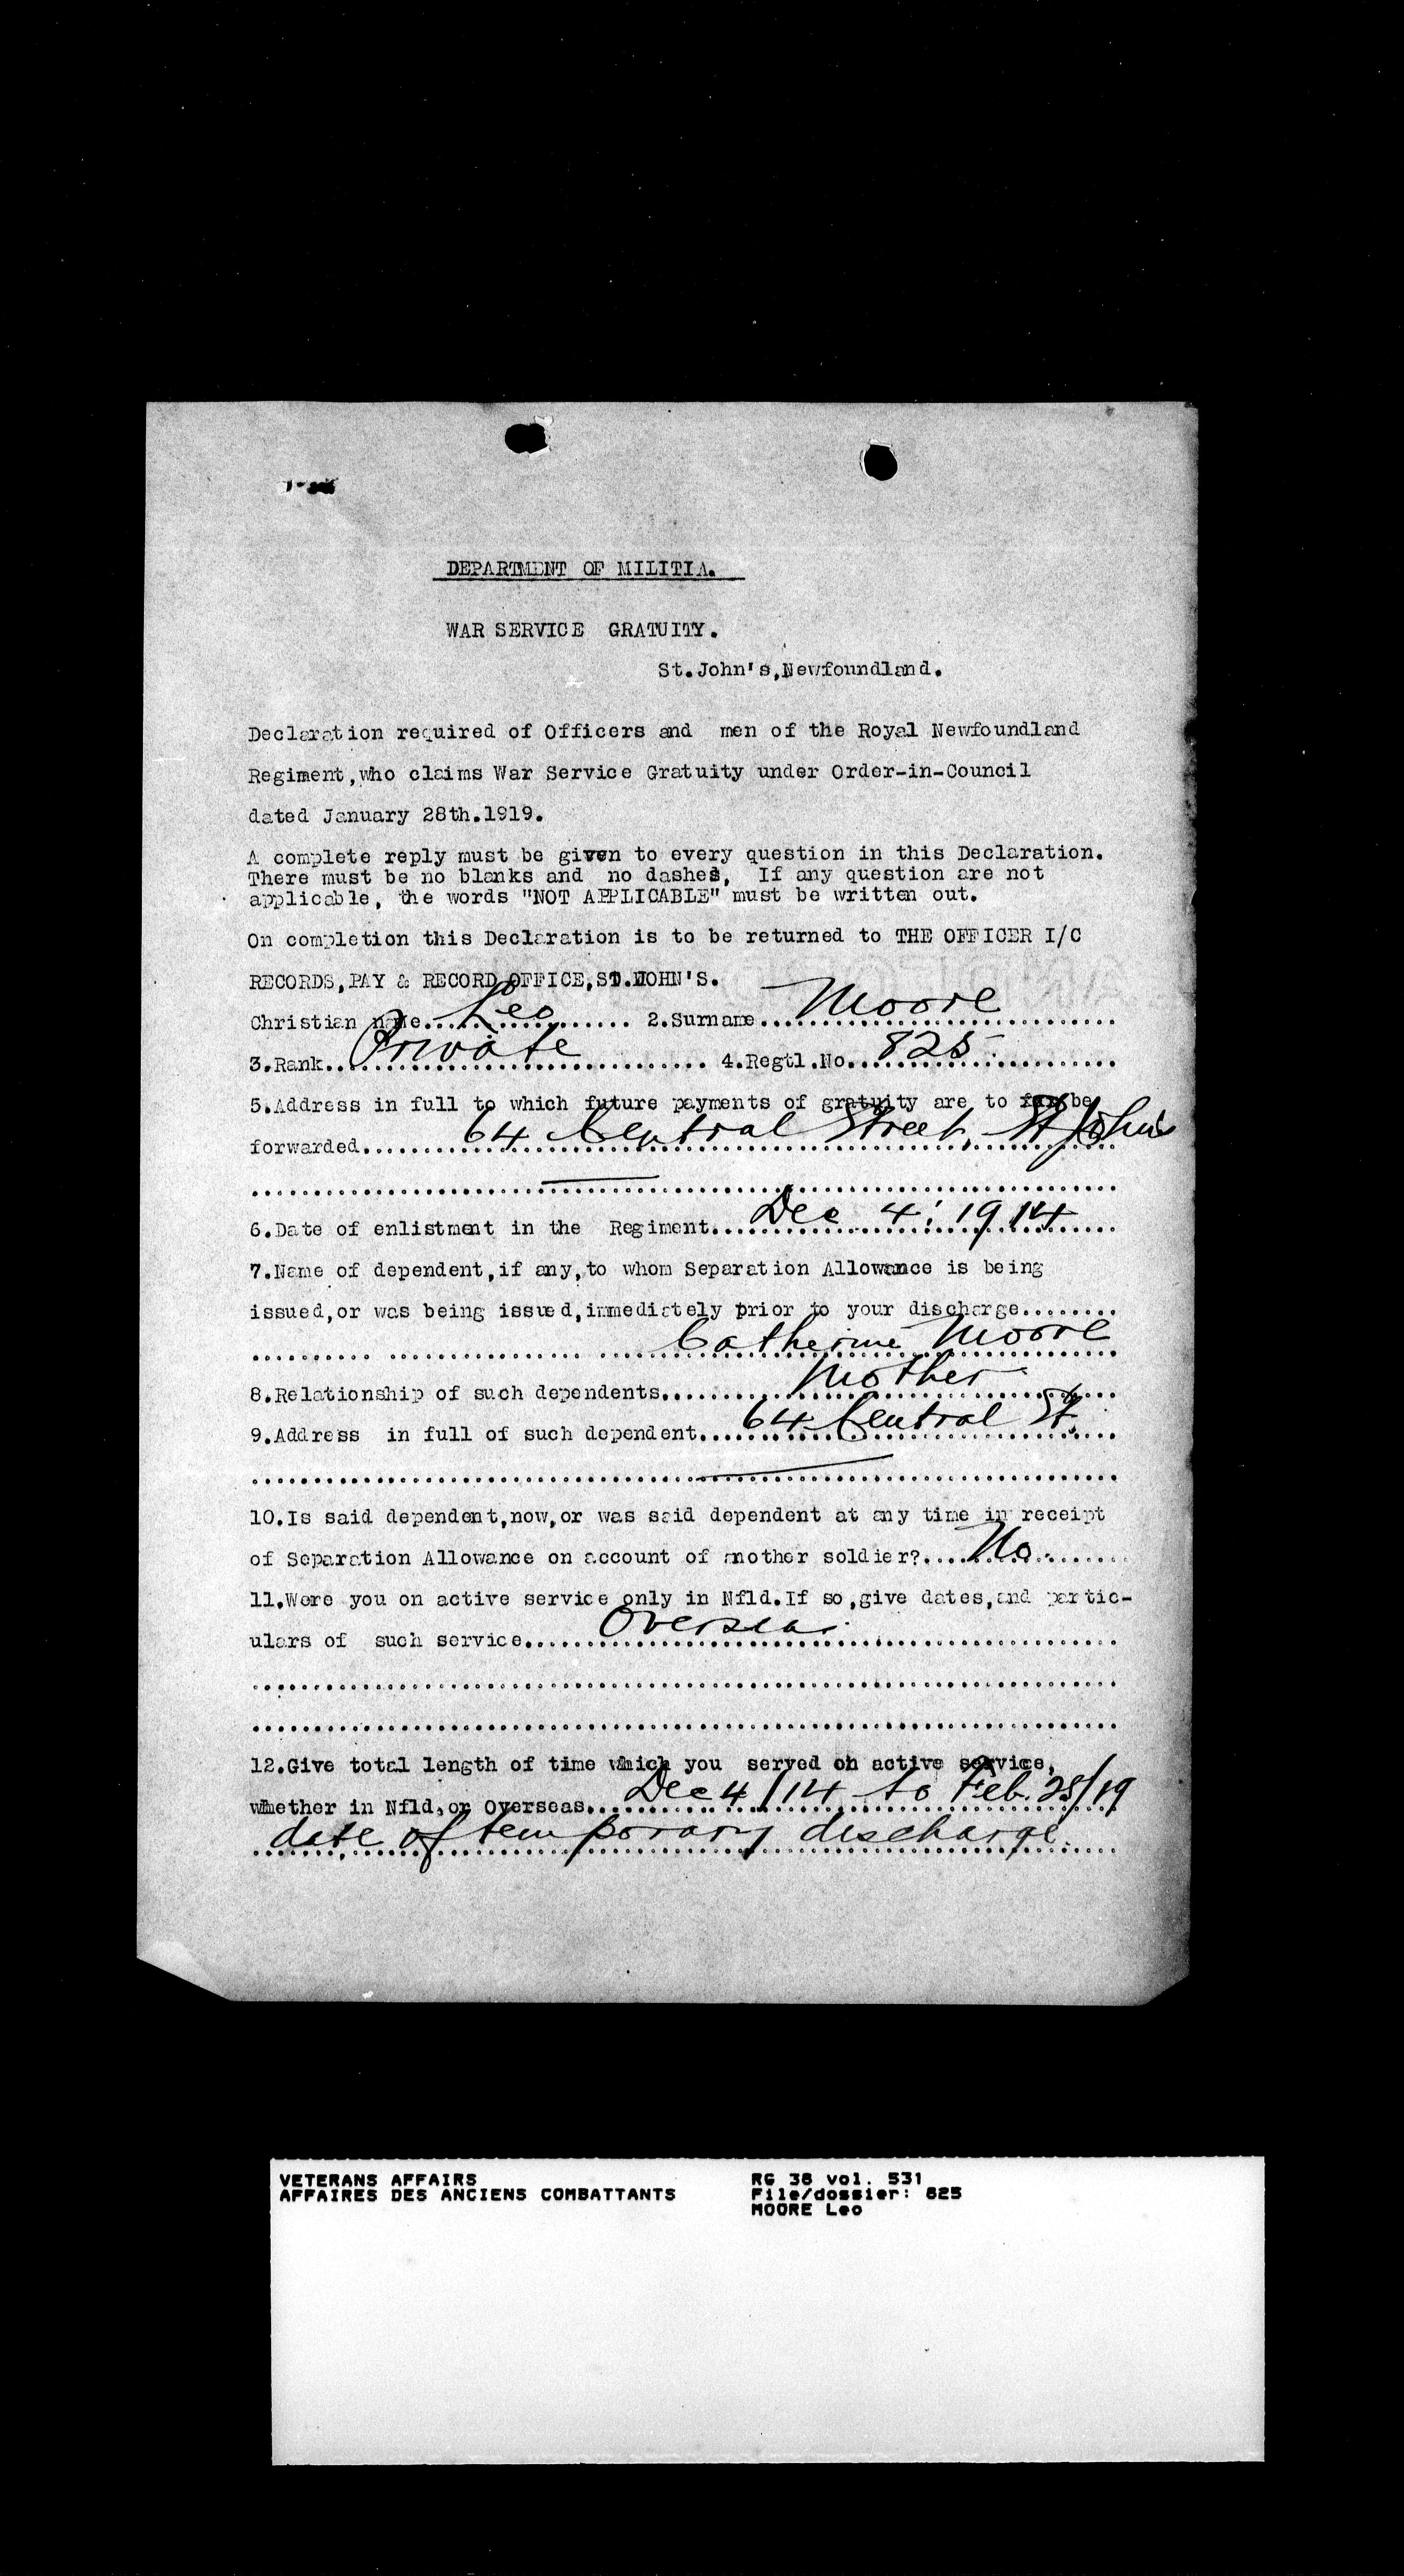 DEPARTMENT OF MILITIA.
WAR SERVICE GRATUITY.
St.John's,Newfoundland.
Declaration required of Officers and men of the Royal Newfoundland
Regiment,who claims War Service Gratuity under Order-in-Council
dated January 28th.1919.
A complete reply must be given to every question in this Declaration.
There must be no blanks and no dashes, If any question are not
applicable, the words "NOT APPLICABLE" must be written out.
On completion this Declaration is to be returned to THE OFFICER I/C
RECORDS,PAY & RECORD OFFICE,ST.JOHN'S.
Christian name.. Leo .......... 2.Surname.. Moore ..........
3.Rank.. Private .......... 4.Regtl.No.. 825 ..........
5.Address in full to which future payments of gratuity are to be
forwarded.......... 64 Central Street, St John's
..........
6.Date of enlistment in the Regiment.. Dec 4: 1914 ..........
7.Name of dependent,if any,to whom Separation Allowance is being
issued,or was being issued,immediately prior to your discharge........
.......... Catherine Moore
8.Relationship of such dependents.......... Mother
9.Address in full of such dependent.......... 64 Central St.
..........
10.Is said dependent,now,or was said dependent at any time in receipt
of Separation Allowance on account of another soldier?.... No ..........
11.Were you on active service only in Nfld.If so,give dates,and partic-
ulars of such service.......... Overseas ..........
..........
..........
12.Give total length of time which you served on active service,
whether in Nfld,or Overseas.. Dec 4/14 to Feb. 28/19
date of temporary discharge.
VETERANS AFFAIRS RG 38 vol. 531
AFFAIRES DES ANCIENS COMBATTANTS File/dossier: 825
MOORE Leo